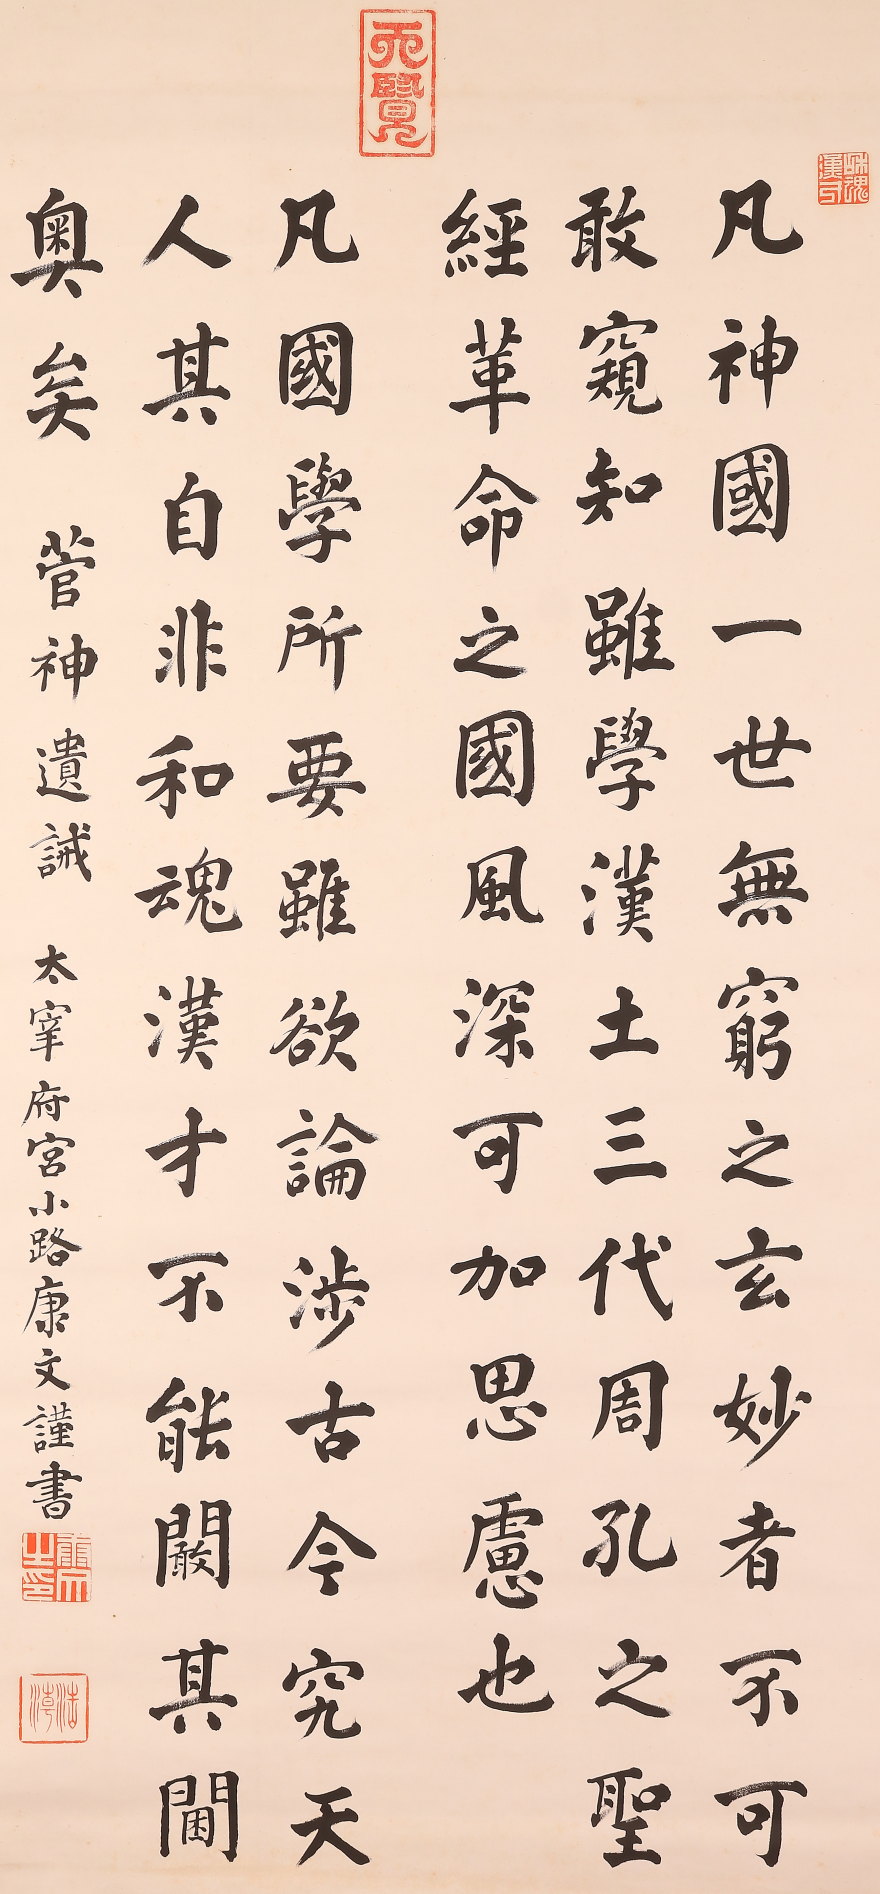 天覽
和魂漢才
凡神國一世無窮之玄妙者不可
敢窺知雖學漢土三代周孔之聖
經革命之國風深可加思慮也
凡國學所要雖欲論渉古今究天
人其自非和魂漢才不能闞其閫
奥矣 菅神遺誡 太宰府宮小路康文謹書
康文之印